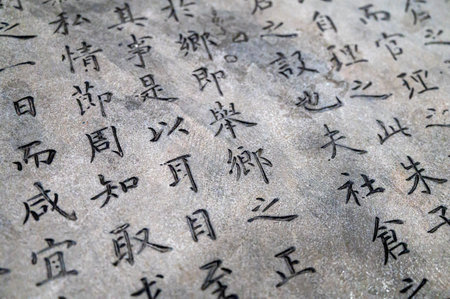 倉之
而官理之
自理之此朱子
之設也夫社倉之
於鄉即舉鄉之正
其事是以耳目至
私情節周知取
一日而咸宜